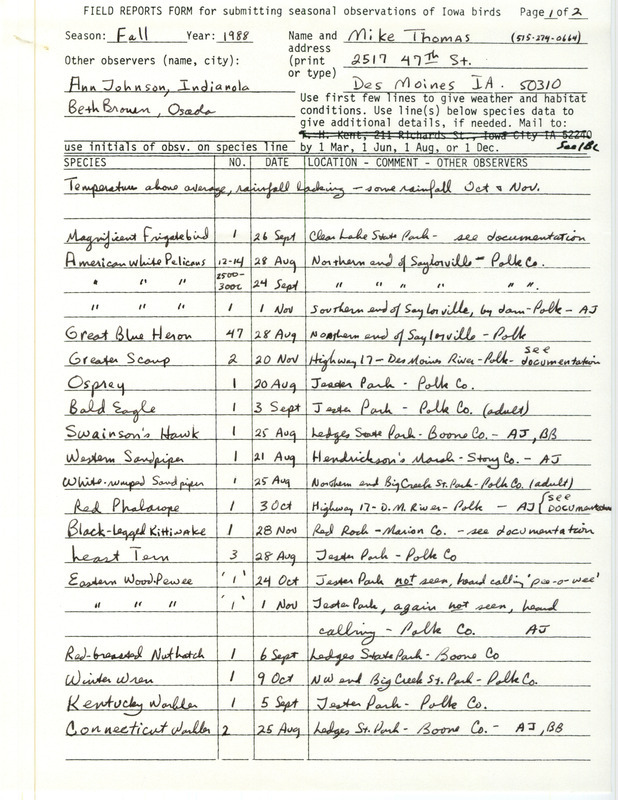 FIELD REPORTS FORM for submitting seasonal observations of Iowa birds Page 1 of 2
Season: Fall Year: 1988 Name and Mike Thomas (515-279-0664)
address
Other observers (name, city): (print 2517 47th St.
or type)
Ann Johnson, Indianola Des Moines IA. 50310
Beth Brown, Osada Use first few lines to give weather and habitat
conditions. Use line(s) below species data to
give additional details, if needed. Mail to:
T. H. Kent, 211 Richards St., Iowa City IA 52240
use initials of obsv. on species line by 1 Mar, 1 Jun, 1 Aug, or 1 Dec.
SPECIES NO. DATE LOCATION - COMMENT - OTHER OBSERVERS
Temperature above average, rainfall lacking - some rainfall Oct & Nov.
Magnificent Frigatebird 1 26 Sept Clear Lake State Park - see documentation
American White Pelicans 12-14 28 Aug Northern end of Saylorville - Polk Co.
" " " 2500-3000 24 Sept " " " " " ".
" " " 1 1 Nov Southern end of Saylorville, by dam - Polk - AJ
Great Blue Heron 47 28 Aug Northern end of Saylorville - Polk
Greater Scaup 2 20 Nov Highway 17 - Des Moines River - Polk - see documentation
Osprey 1 20 Aug Jester Park - Polk Co.
Bald Eagle 1 3 Sept Jester Park - Polk Co. (adult)
Swainson's Hawk 1 25 Aug Ledges State Park - Boone Co. - AJ, BB
Western Sandpiper 1 21 Aug Hendrickson's Marsh - Story Co. - AJ
White-rumped Sandpiper 1 25 Aug Northern end Big Creek St. Park - Polk Co. (adult)
Red Phalarope 1 3 Oct Highway 17 - D.M. River - Polk - AJ { see documentation
Black-legged Kittiwake 1 28 Nov Red Rock - Marion Co. - see documentation
Least Tern 3 28 Aug Jester Park - Polk Co
Eastern Wood-Pewee '1' 24 Oct Jester Park not seen, heard calling 'pee-o-wee'
" " " '1' 1 Nov Jester Park, again not seen, heard
calling - Polk Co. AJ
Red-breasted Nuthatch 1 6 Sept Ledges State Park - Boone Co
Winter Wren 1 9 Oct NW end Big Creek St. Park - Polk Co.
Kentucky Warbler 1 5 Sept Jester Park - Polk Co.
Connecticut Warbler 2 25 Aug Ledges St. Park - Boone Co. - AJ, BB